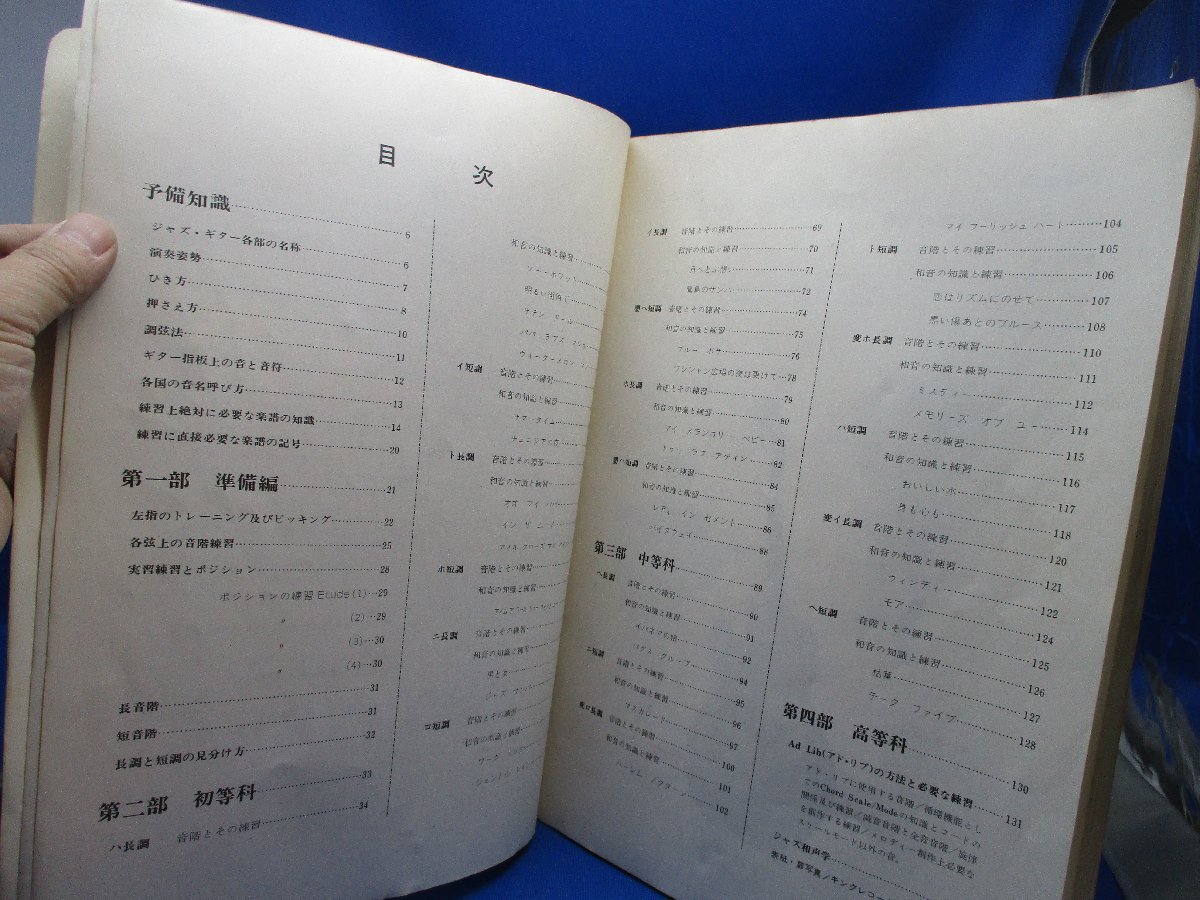 目次
予備知識 6
ジャズ・ギター各部の名称 6
演奏姿勢 7
ひき方 8
押さえ方 10
調弦法 11
ギター指板上の音と音符 12
各国の音名呼び方 13
練習上絶対に必要な楽譜の知識 14
練習に直接必要な楽譜の記号 20
第一部 準備編 21
左指のトレーニング及びピッキング 22
各弦上の音階練習 25
実習練習とポジション 28
ポジションの練習 Etude (1) 29
〃 (2) 29
〃 (3) 30
〃 (4) 30
長音階 31
短音階 31
長調と短調の見分け方 32
第二部 初等科 33
ハ長調 音階とその練習 34
和音の知識と練習
イ短調 音階とその練習
和音の知識と練習
サマータイム
ト長調 音階とその練習
和音の知識と練習
ホ短調 音階とその練習
和音の知識と練習
ニ長調 音階とその練習
和音の知識と練習
ロ短調 音階とその練習
和音の知識と練習
ワーク
イ長調 音階とその練習 69
和音の知識と練習 70
71
72
嬰ヘ短調 音階とその練習 74
和音の知識と練習 75
ブルー ボサ 76
ワシントン広場の夜は更けて 78
ホ長調 音階とその練習 79
和音の知識と練習 80
マイ メランコリー ベビー 81
82
嬰ハ短調 音階とその練習 84
和音の知識と練習 85
レディ イン セメント 86
バイ ダウェイ 88
第三部 中等科 89
ヘ長調 音階とその練習 90
和音の知識と練習 91
イパネマの娘 92
94
ニ短調 音階とその練習 95
和音の知識と練習 96
マスカレード 97
変ロ長調 音階とその練習 100
和音の知識と練習 101
ハーレム ノクターン 102
マイ フーリッシュ ハート 104
ト短調 音階とその練習 105
和音の知識と練習 106
恋はリズムにのせて 107
黒い傷あとのブルース 108
変ホ長調 音階とその練習 110
和音の知識と練習 111
ミスティー 112
メモリーズ オブ ユー 114
ハ短調 音階とその練習 115
和音の知識と練習 116
おいしい水 117
身も心も 118
変イ長調 音階とその練習 120
和音の知識と練習 121
ウィンディ 122
モア 124
ヘ短調 音階とその練習 125
和音の知識と練習 126
枯葉 127
テーク ファイブ 128
第四部 高等科 130
Ad Lib(アド・リブ)の方法と必要な練習 131
アド・リブに使用する音階/循環機能とし
てのChord Scale/Modeの知識とコードの
関係及び練習/減音音階と全音音階/旋律
を創作する練習/メロディー創作上必要な
スケールモード以外の音。
ジャズ和声学
表紙・扉写真/キングレコー